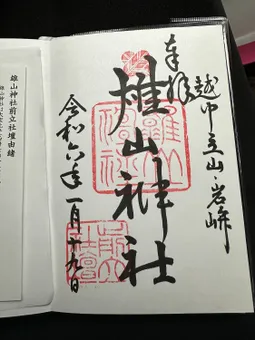 越中立山・岩峅
奉拝
雄山神社
令和六年一月十九日
雄山神社前立社壇由緒